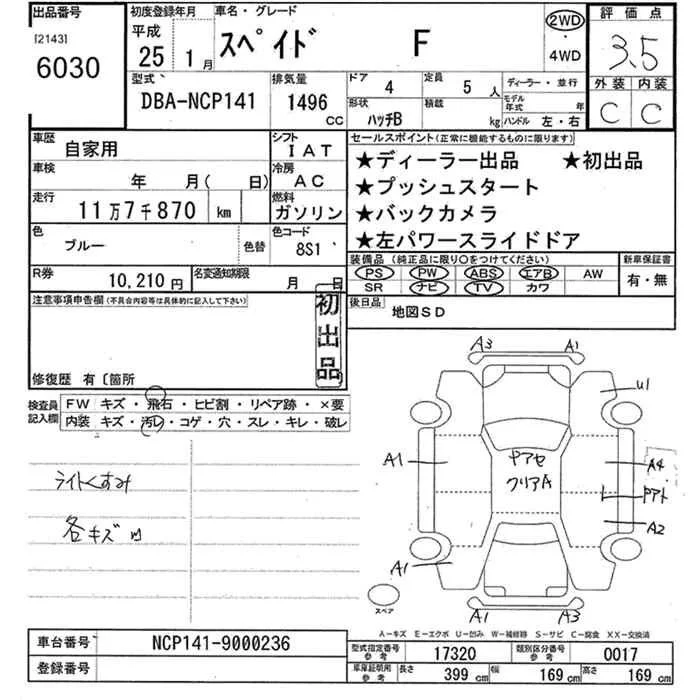 出品番号 初度登録年月 車名・グレード 評価点
[2143] 平成 スペイド F 2WD
6030 25 1月 ・ 3.5
4WD
型式 排気量 ドア 4 定員 5人 ディーラー・並行 外装 内装
DBA-NCP141 1496 CC 形状 ハッチB 積載 kg モデル年式 年 C C
ハンドル 左・右
車歴 自家用 シフト IAT セールスポイント(正常に機能するものに限ります)
車検 年 月( 日) 冷房 AC ★ディーラー出品 ★初出品
走行 11万7千870 km 燃料 ガソリン ★プッシュスタート
★バックカメラ
色 ブルー 色替 色コード 8S1 ★左パワースライドドア
R券 10,210円 名変通知期限 月 日 装備品(純正品に限り○をつけてください) 新車保証書
PS PW ABS エアB AW 有・無
SR ナビ TV カワ
注意事項申告欄(不具合内容等は具体的に記入して下さい) 初出品 後日品 地図SD
修復歴 有〔箇所
検査員記入欄 FW キズ・飛石・ヒビ割・リペア跡・×要
内装 キズ・汚レ・コゲ・穴・スレ・キレ・破レ
ライトくすみ
各キズ
A3 A1
U1
A1 ヤアセ A4
クリアA
A2
A1
スペア A1 A3
A-キズ E-エクボ U-凹み W-補修跡 S-サビ C-腐食 XX-交換済
車台番号 NCP141-9000236 型式指定番号参考 17320 類別区分番号参考 0017
登録番号 車庫証明用参考 長さ 399 cm 幅 169 cm 高さ 169 cm